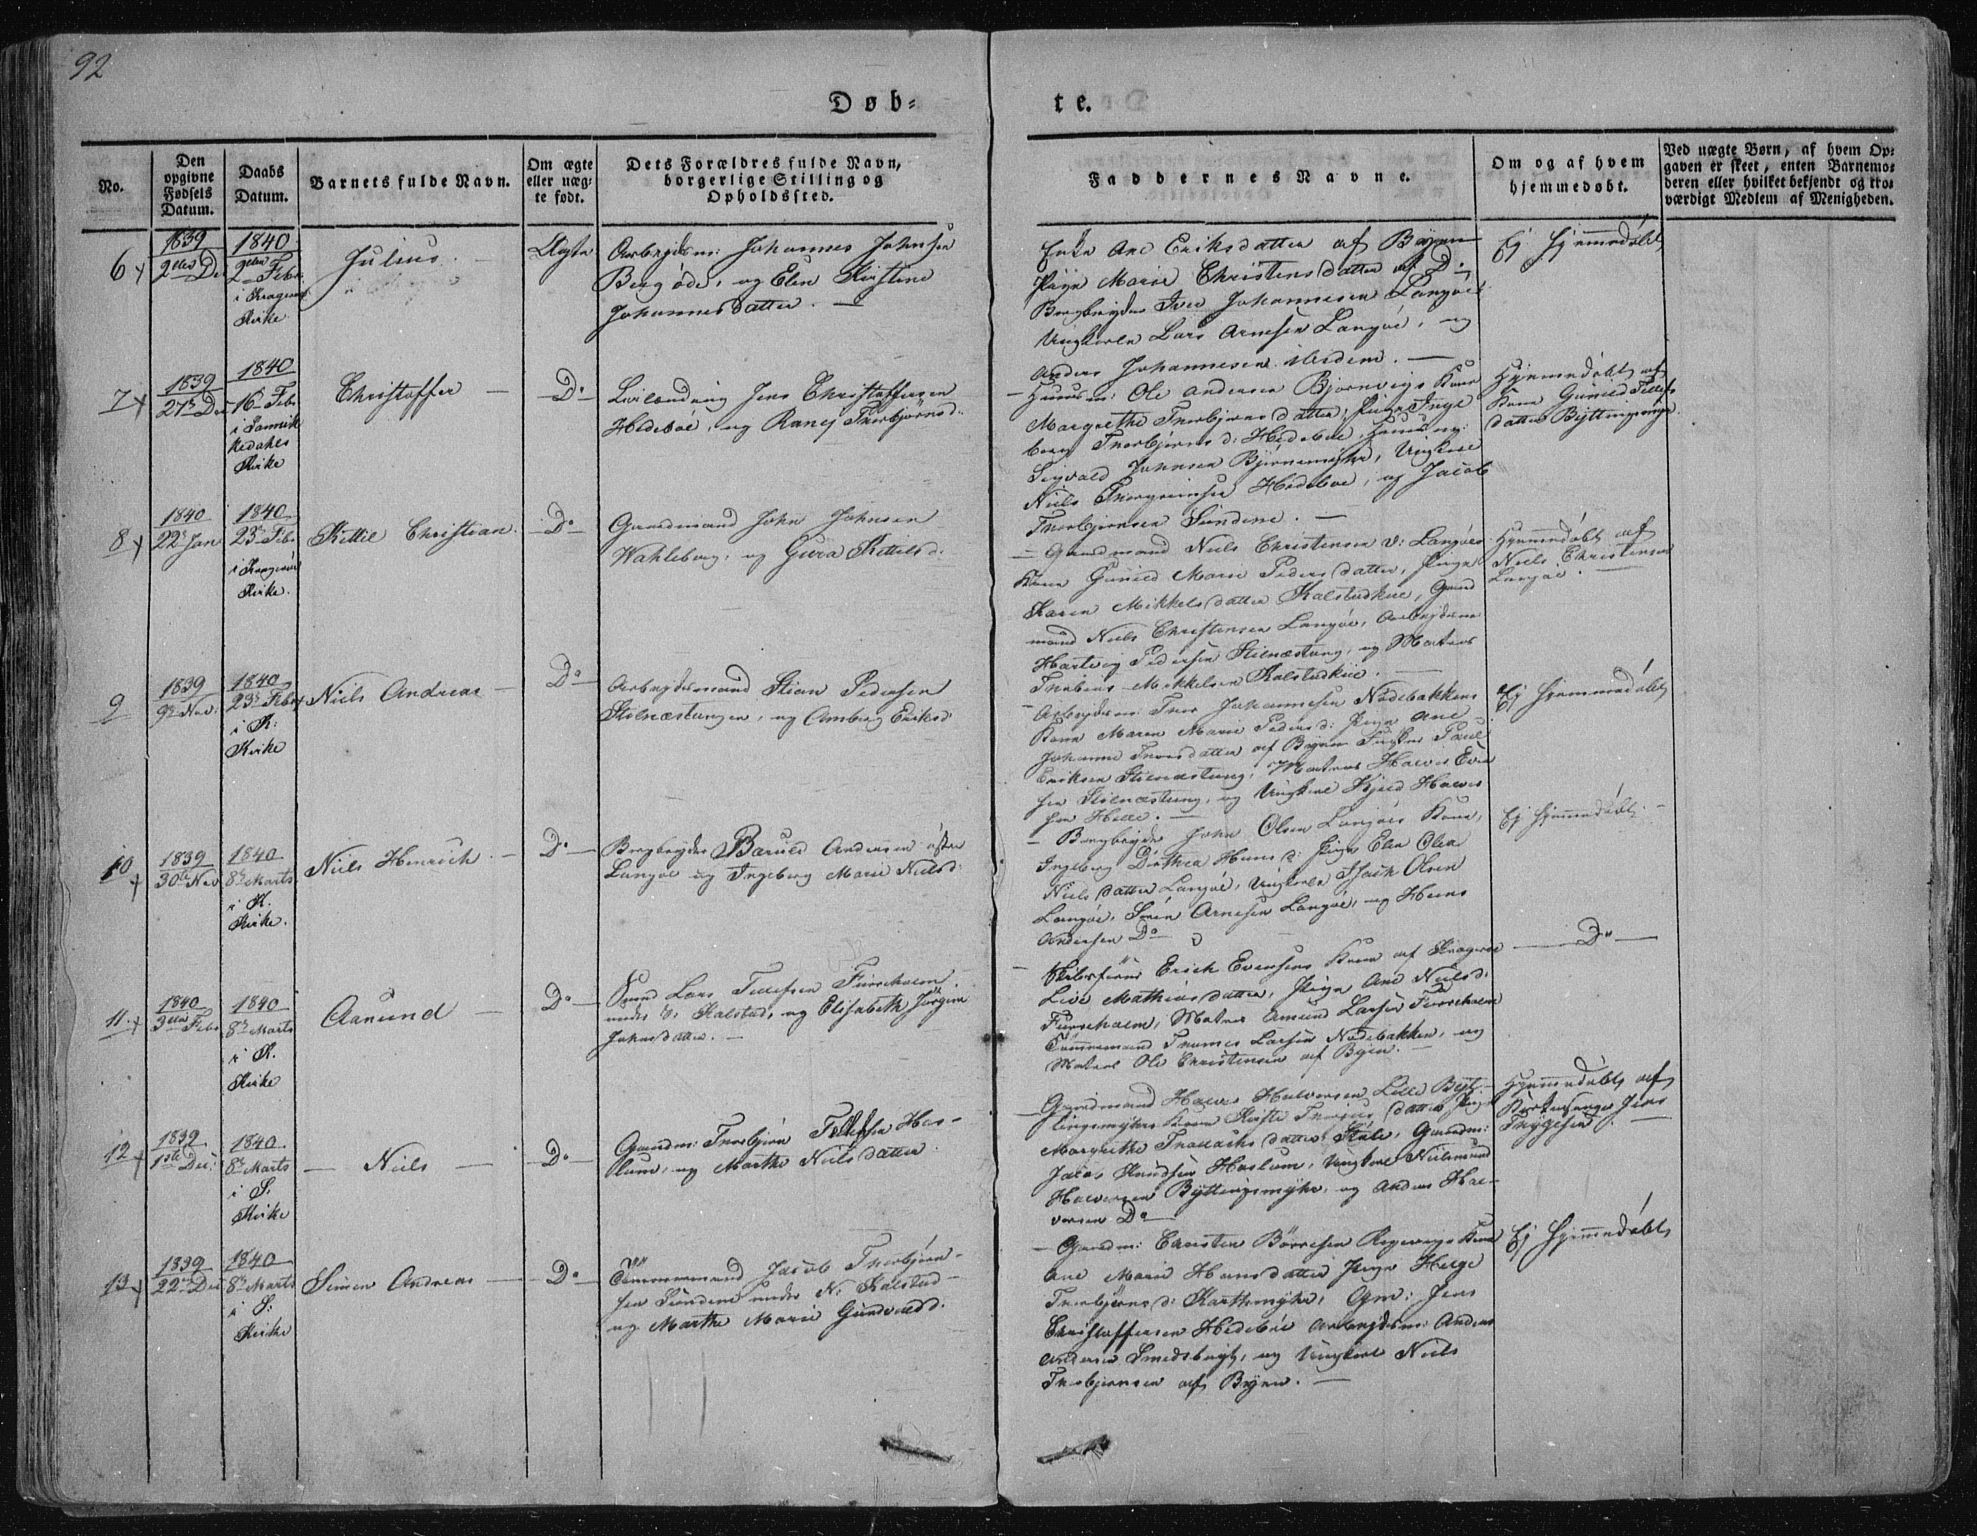 92
Døb-
te.
No.
Den opgivne Fødsels Datum.
Daabs Datum.
Barnets fulde Navn.
Om ægte eller uægte født.
Dets Forældres fulde Navn, borgerlige Stilling og Opholdssted.
Faddernes Navne.
Om og af hvem hjemmedøbt.
Ved uægte Børn, af hvem Opgaven er skeet, enten Barnemoderen eller hvilket bekjendt og troværdigt Medlem af Menigheden.
6
1839
2den Dec
1840
2den Febr.
i Kragerøe
Kirke
Julius.
Ægte
Arbeydsm: Johannes Johnsen
Bergøde, og Elen Kirstine
Johannesdatter.
Enke Ane Eriksdatter af Byen
Pige Marie Christensdatter af Do
Bergbryder Iver Johannesen Langøe
Ungkarl Lars Arnesen Langøe, og
Anders Johannesen
Ej Hjemmedøbt
7
1839
27 Dec
1840
16 Feb.
i Sannik
Kirke
Christoffer
Do
Jens Christoffersen
Hedebøe, og Ranej Thorbjørnsd.
Huusm: Ole Andersen Bjørnvigs Kone
Margrethe Thorbjørnsdatter, Pige Inge
borg Thorbjørnsd: Hedebøe, Huusm:
Johnsen Bjørnemyhr, Ungkarl
Niels Hedeboe, og Jacob
Thorbjørnsen Sundene.
Hjemmedøbt af
Kone Gunild
datter
8
1840
22 Jan
1840
23 Febr.
i Kragerøe
Kirke.
Kittil Christian.
Do
Gaardmand John Johnsen
Wahleberg, og Gura Kittilsd.
Gaardmand Niels Christensen Langøes
Kone Gunild Marie Pedersdatter, Pige
Karen Mikkelsdatter Kalstadkiil, Gaard
mand Niels Christensen Langøe, Arbeydsm
Hartvig Pedersen Stilnæstang, og Matros
Mikkelsen Kalstadkiil.
Hjemmedøbt af
Niels Christensen
Langøe.
9
1839
9 Nov.
1840
23 Febr
i K:
Kirke
Niels Andreas
Do
Arbeydsmand Stian Pedersen
Stilnæstangen, og Amberg Eriksd
Arbeydsm: Thor Johannesen Nødebakkens
Kone Maren Marie Pedersd: Pige Ane
Johanne Thorsdatter af Byen Paul
Eriksen Stilnæstang, Matros Halvor Even
sen Stilnæstang, og Ungkarl Kjeld Halvor
sen Helle.
Ej Hjemmedøbt
10
1839
30te Nov
1840
8 Marts
i K.
Kirke.
Niels Henrich.
Do
Bergbryder Baruld Andersen østre
Langøe og Ingeborg Marie Nielsd.
Bergbryder John Olsen Langøes Kone,
Ingeborg Dorthea Hansd: Pige Elen Olea
Nielsdatter Langøe, Ungkarl Isach Olsen
Langøe, Sørn Arnesen Langøe, og Hans
Andersen Do
Ej Hjemmedøbt.
11
1840
3die Febr
1840
8 Marts
i K.
Kirke
Aanund
Do
mand Lars Tellefsen Furuholm,
under Kalstad, og Elisabeth Jørgine
Johnsdatter.
Skibsfører Erich Evensens Kone af Kragerøe
Live Mathiasdatter, Pige Ane Nielsd:
Furuholm, Matros Amund Larsen Furuholm
Tømmermand Thomes Larsen Nødebakken, og
Matros Ole Christensen af Byen.
Do
12
1839
1ste Dec.
1840
8 Marts
i S.
Kirke
Niels
Do
Gaardm: Thorbjørn Has-
lum, og Marthe Nielsdatter.
Gaardmand Halvor Halvorsen Lille Byt-
lingsmyhrs Kone Kirste datter, Pige
Margrethe datter, Gaardm:
Jacob Knudsen Haslum, Ungkarl Nielsmand
Halvorsen Byttingsmyhr, og Anders Hal-
vorsen Do
Hjemmedøbt af
Jens
13
1839
22 Dec
1840
8 Marts
i S:
Kirke
Simen Andreas
Do
Tømmermand Jacob Thorbjørn-
sen Sundene under N: Kalstad
og Marthe Marie Gundvaldsd.
Gaardm: Christen Børresen Kone
Ane Marie Hansdatter Pige Helge
Thorbjørnsd: Karthmyhr, Gm: Jens
Christoffersen Hedebøe Arbeydsm: Anders
Andersen Smedsbugt, og Ungkarl Niels
Thorbjørnsen af Byen.
Ej Hjemmedøbt